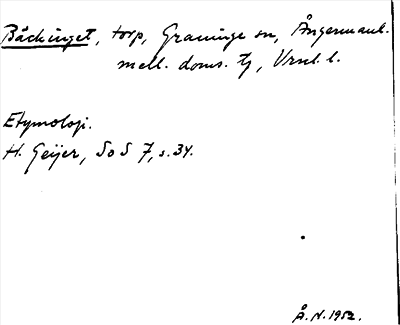 Bäckinget, torp, Graninge sn, Ångermanl.
mell. doms. tj, Vrnl. l.
Etymologi.
H. Geijer, SoS 7, s. 34.
Å. N. 1952.